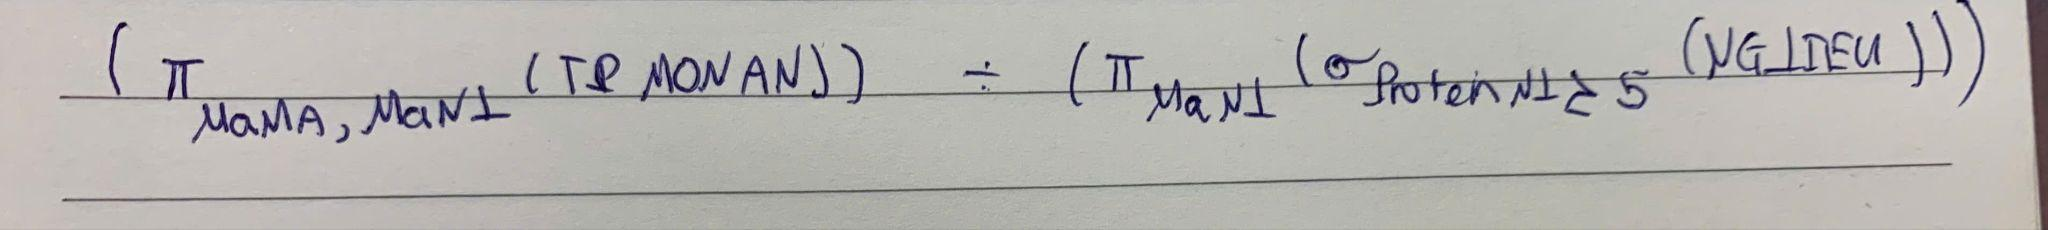 (π MaMA, MaNL (TP MONAN)) ÷ (π MaNL (σ Protein NL ≥ 5 (NGLIEU)))